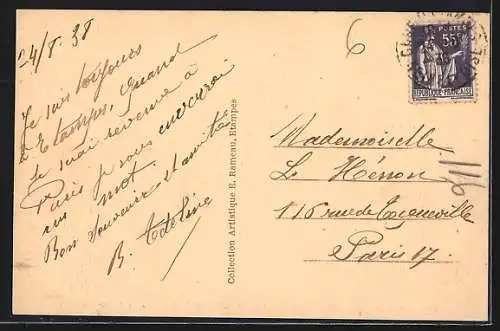 24/8. 38
Je suis toujours
à Etampes, quand
je serai revenue à
Paris je vous enverrai
un mot.
Bon souvenir et amitiés
B.
Collection Artistique E. Rameau, Etampes
6
POSTES
55c
REPUBLIQUE FRANÇAISE
Mademoiselle
L. Hénon
116 rue de Tocqueville
Paris 17.